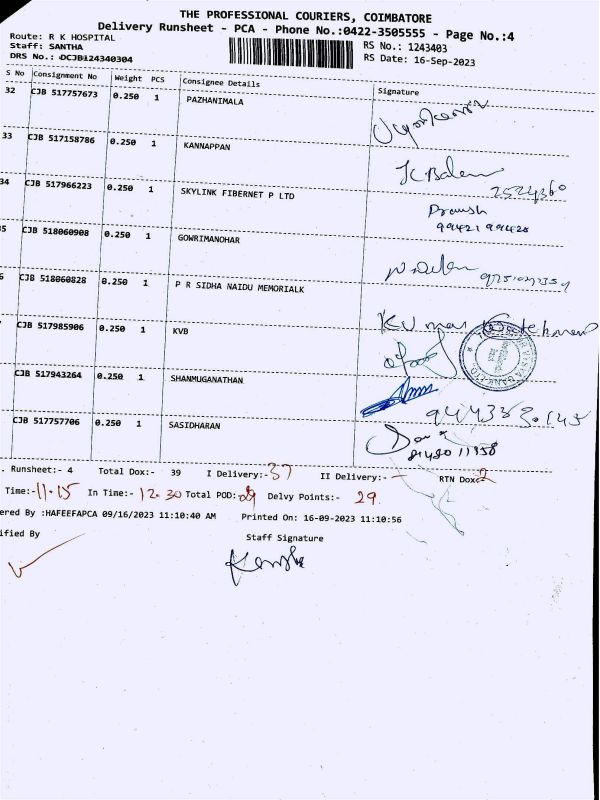 THE PROFESSIONAL COURIERS, COIMBATORE
Delivery Runsheet - PCA - Phone No.:0422-3505555 - Page No.:4
Route: R K HOSPITAL
Staff: SANTHA
DRS No.: DCJB124340304
RS No.: 1243403
RS Date: 16-Sep-2023
S No Consignment No Weight PCS Consignee Details Signature
32 CJB 517757673 0.250 1 PAZHANIMALA
33 CJB 517158786 0.250 1 KANNAPPAN
34 CJB 517966223 0.250 1 SKYLINK FIBERNET P LTD
5 CJB 518060908 0.250 1 GOWRIMANOHAR
CJB 518060828 0.250 1 P R SIDHA NAIDU MEMORIALK
CJB 517985906 0.250 1 KVB
CJB 517943264 0.250 1 SHANMUGANATHAN
CJB 517757706 0.250 1 SASIDHARAN
. Runsheet:- 4 Total Dox:- 39 I Delivery:- 37 II Delivery:- - RTN Dox: 2
Time:- 11.15 In Time:- 12.30 Total POD: 29 Delvy Points:- 29
ered By :HAFEEFAPCA 09/16/2023 11:10:40 AM Printed On: 16-09-2023 11:10:56
ified By Staff Signature